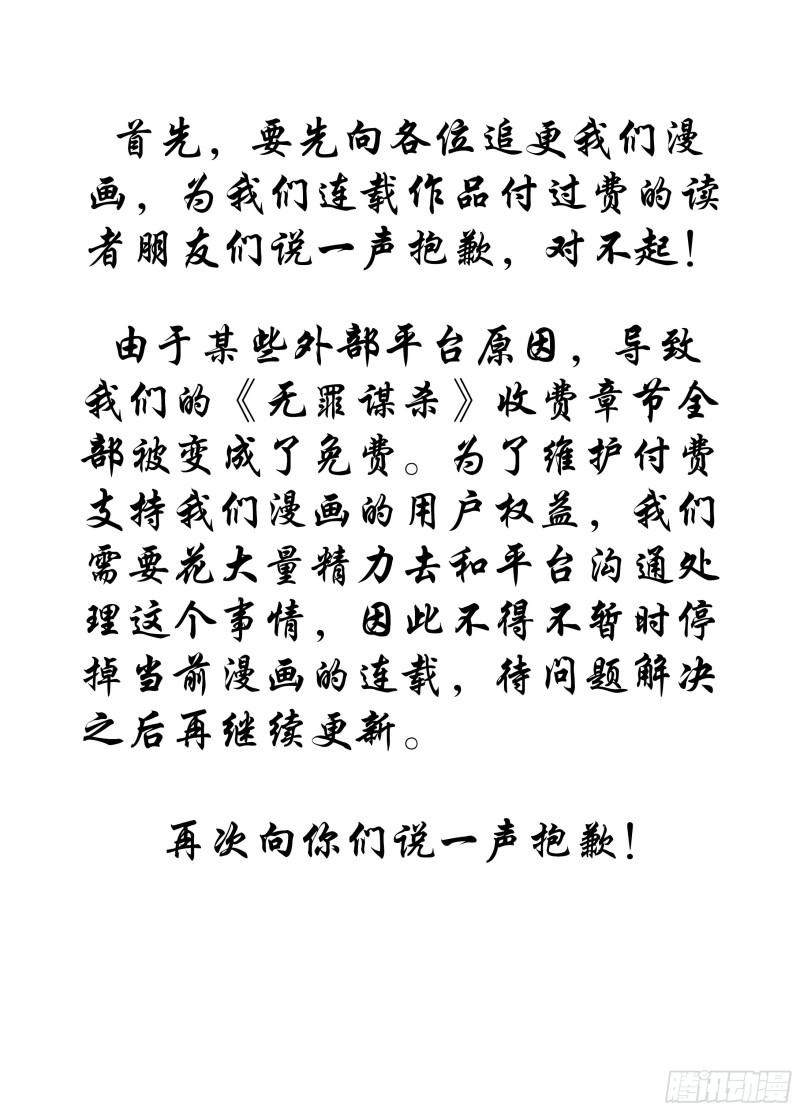 首先，要先向各位追更我们漫
画，为我们连载作品付过费的读
者朋友们说一声抱歉，对不起！
由于某些外部平台原因，导致
我们的《无罪谋杀》收费章节全
部被变成了免费。为了维护付费
支持我们漫画的用户权益，我们
需要花大量精力去和平台沟通处
理这个事情，因此不得不暂时停
掉当前漫画的连载，待问题解决
之后再继续更新。
再次向你们说一声抱歉！
腾讯动漫